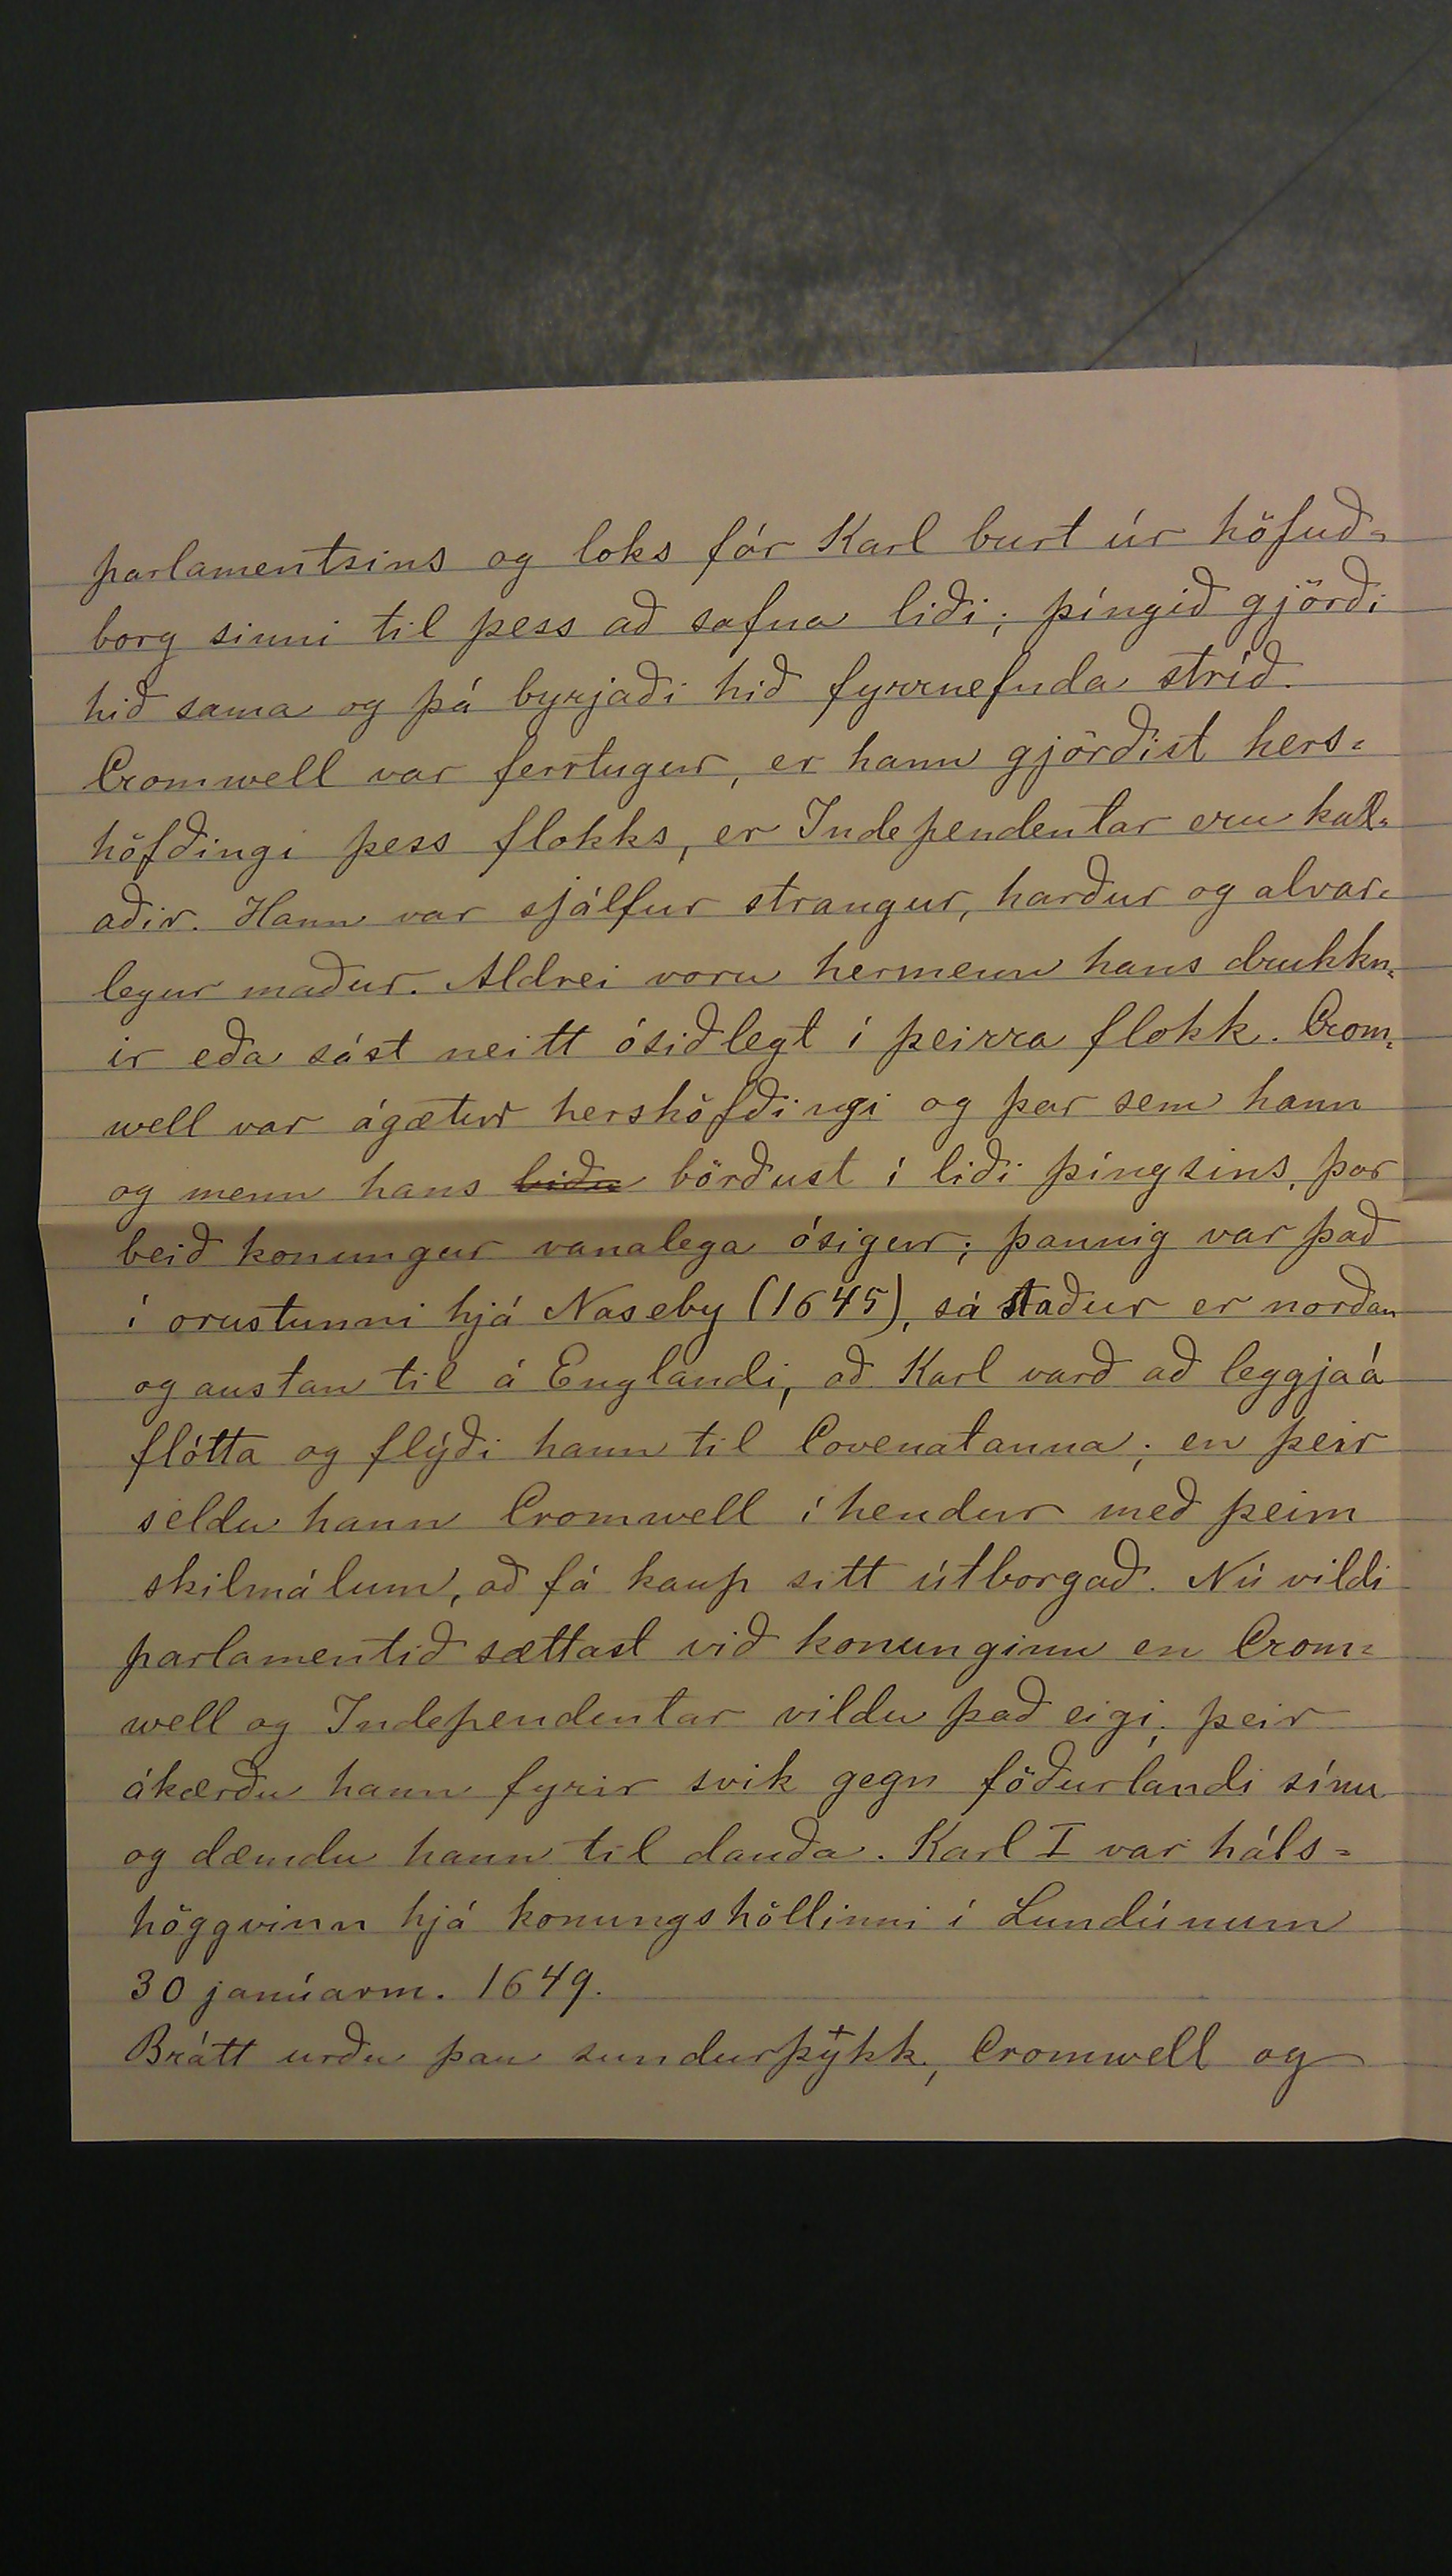 parlamentsins og loks fór Karl burt úr höfuð=
borg sinni til þess að safna liði; þíngið gjörði
hið sama og þá byrjaði hið fyrrnefnda stríð.
Cromwell var fertugur, er hann gjörðist hers=
höfðingi þess flokks, er Independentar eru kall=
aðir. Hann var sjálfur strangur, harður og alvar=
legur maður. Aldrei voru hermenn hans drukkn=
ir eða sást neitt ósiðlegt í þeirra flokk. Crom=
well var ágætur hershöfðingi og þar sem hann
og menn hans biðu börðust í liði þíngsins, þar
beið konungur vanalega ósigur; þannig var það
í orustunni hjá Naseby (1645), sá staður er norðan
og austan til á Englandi, að Karl varð að leggja á
flótta og flýði hann til Covenatanna; en þeir
seldu hann Cromwell í hendur með þeim
skilmálum, að fá kaup sitt útborgað. Nú vildi
parlamentið sættast við konunginn en Crom=
well og Independentar vildu það eigi, þeir
ákærðu hann fyrir svik gegn föðurlandi sínu
og dæmdu hann til dauða. Karl I var háls=
höggvinn hjá konungshöllinni í Lundúnum
30 janúarm. 1649.
Brátt urðu þau sundurþykk, Cromwell og